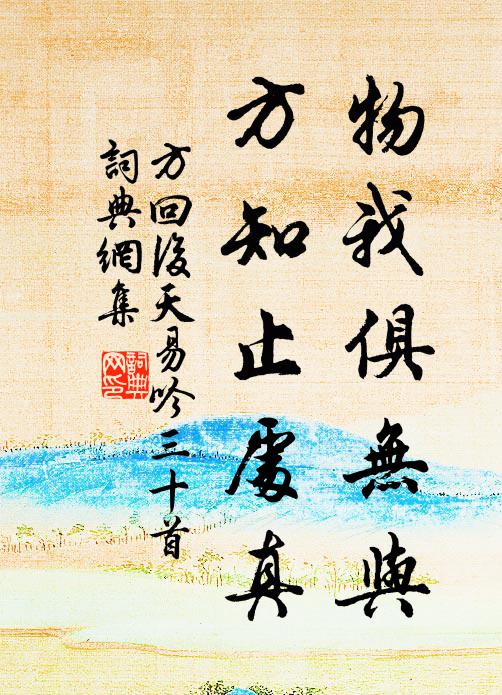 物我俱無與
方知止處真
方回後天易吟三十首
詞典網集
詞典
网印